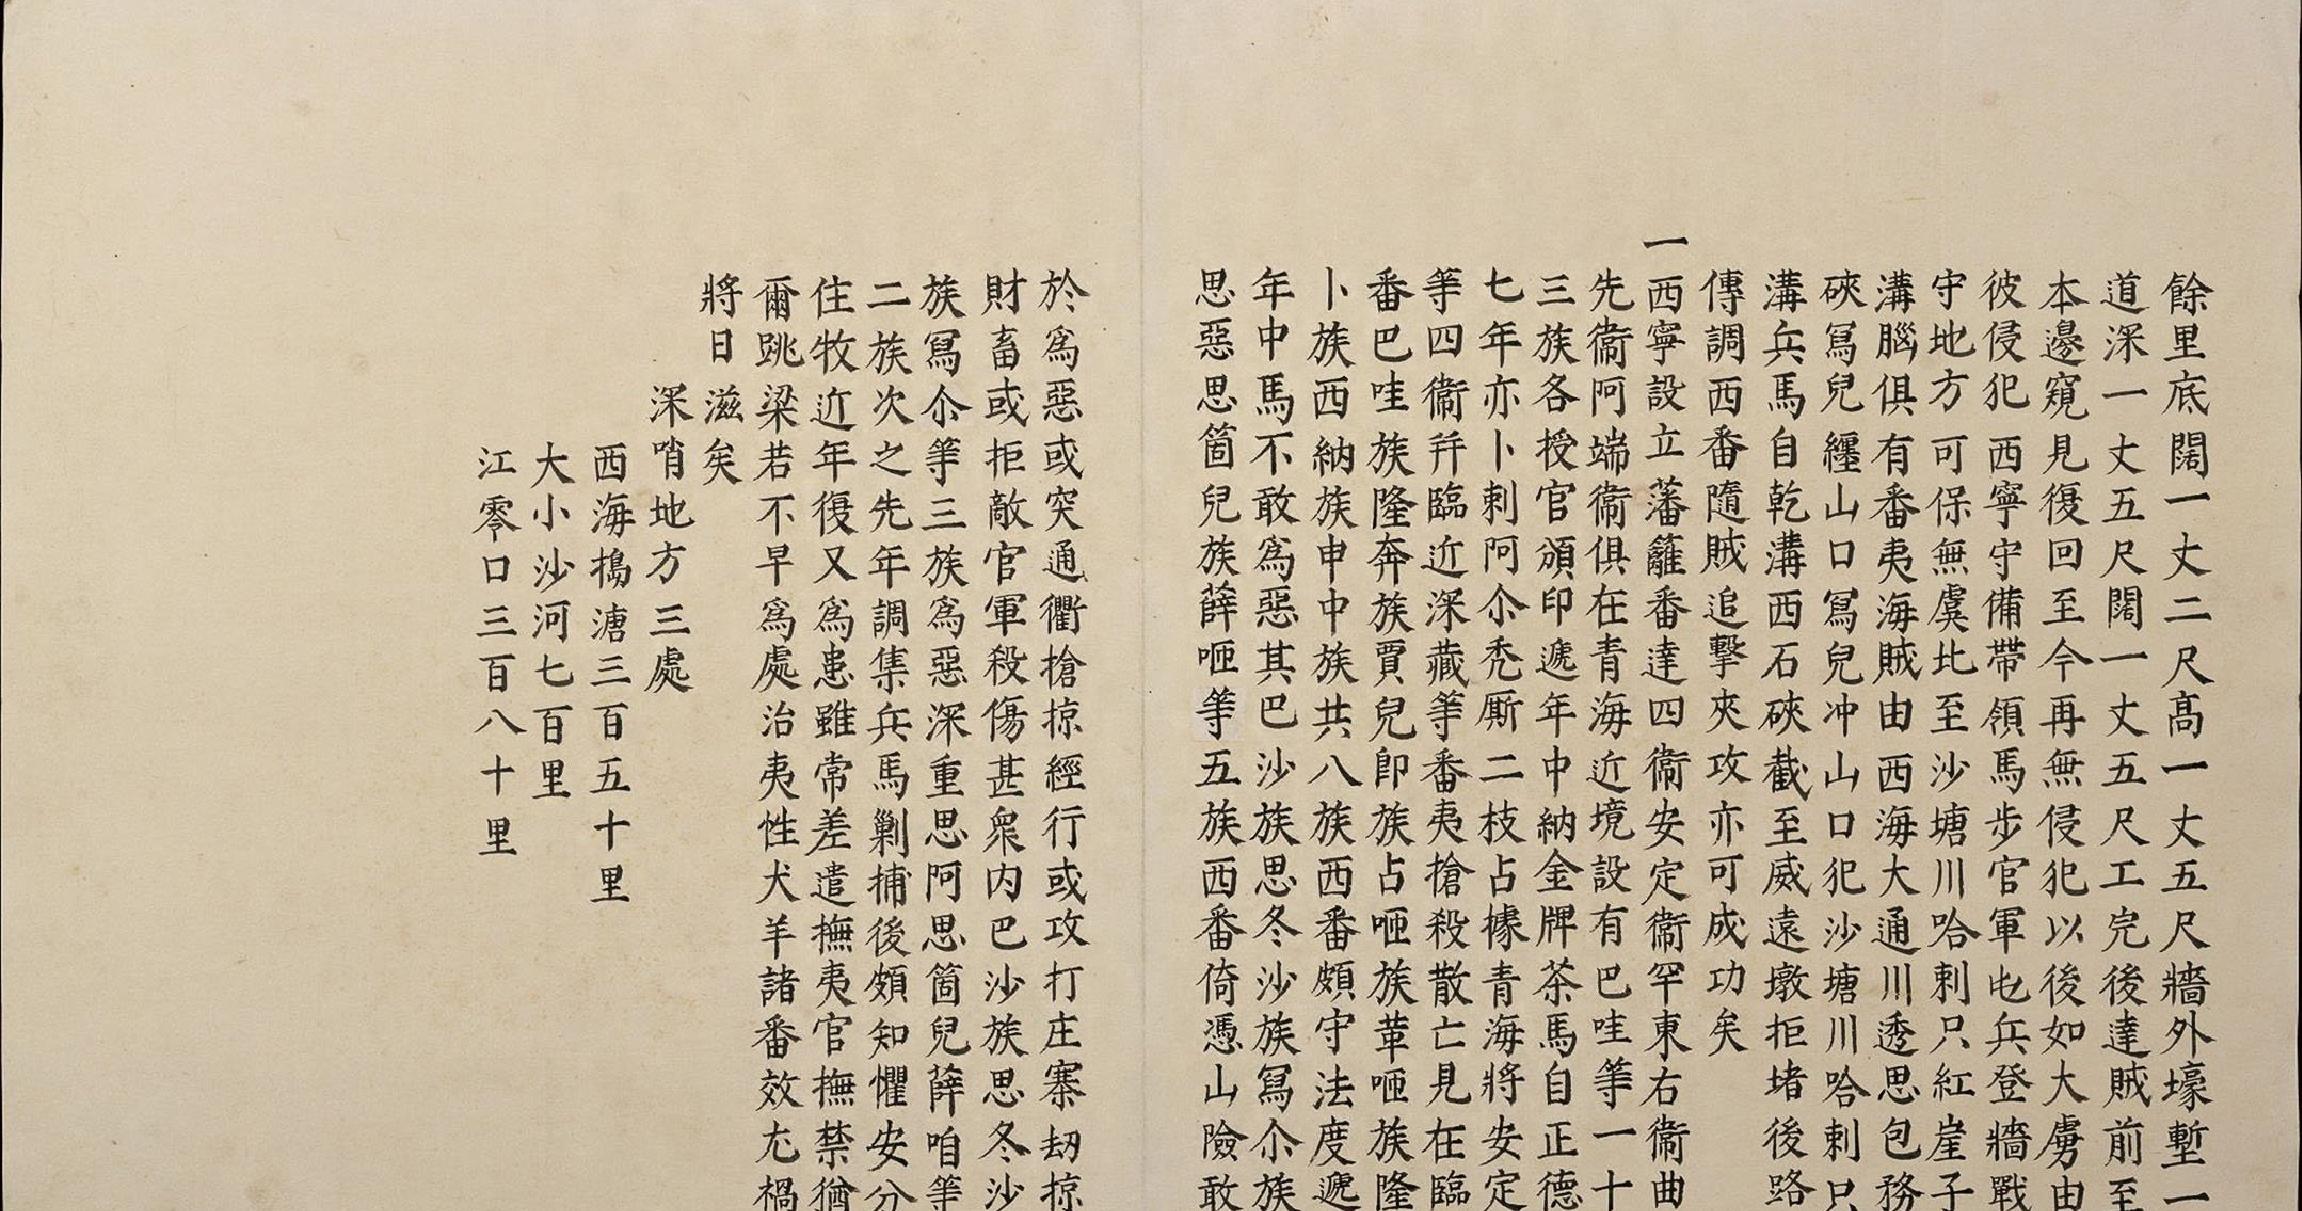 餘里底闊一丈二尺高一丈五尺牆外壕塹一
道深一丈五尺闊一丈五尺工完後達賊前至
本邊窺見復回至今再無侵犯以後如大虜由
彼侵犯西寧守備帶領馬步官軍屯兵登牆戰
守地方可保無虞北至沙塘川哈剌只紅崖子
溝腦俱有番夷海賊由西海大通川透思包務
硤寫兒纏山口寫兒冲山口犯沙塘川哈剌只
溝兵馬自乾溝西石硤截至威遠墩拒堵後路
傳調西番隨賊追擊夾攻亦可成功矣
一西寧設立藩籬番達四衞安定衞罕東右衞曲
先衞阿端衞俱在青海近境設有巴哇等一十
三族各授官頒印遞年中納金牌茶馬自正德
七年亦卜剌阿尒禿厮二枝占據青海將安定
等四衞幷臨近深藏等番夷搶殺散亡見在臨
番巴哇族隆奔族賈兒卽族占咂族革咂族隆
卜族西納族申中族共八族西番頗守法度遞
年中馬不敢爲惡其巴沙族思冬沙族寫尒族
思惡思箇兒族薛咂等五族西番倚憑山險敢
於爲惡或突通衢搶掠經行或攻打庄寨刼掠
財畜或拒敵官軍殺傷甚衆内巴沙族思冬沙
族寫尒等三族爲惡深重思阿思箇兒薛咱等
二族次之先年調集兵馬剿捕後頗知懼安分
住牧近年復又爲患雖常差遣撫夷官撫禁猶
爾跳梁若不早爲處治夷性犬羊諸番效尤禍
將日滋矣
深哨地方三處
西海搗溏三百五十里
大小沙河七百里
江零口三百八十里